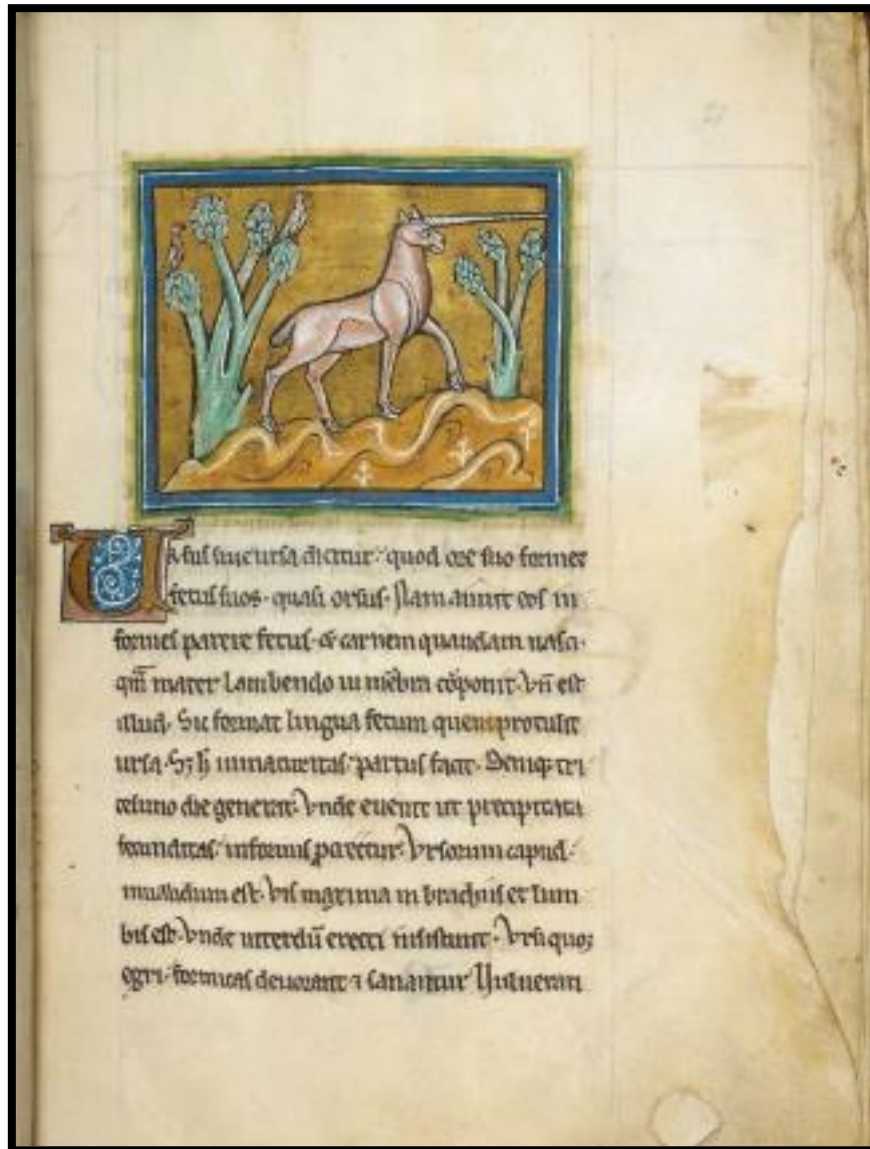 Ursus siue ursa dicitur: quod ore suo formet
fetus suos. quasi orsus. Nam aiunt eos in
formes parere fetus. & carnem quandam nasci.
qm̄ mater lambendo in mēbra cōponit. Vn̄ est
illud. Sic format lingua fetum quem protulit
ursa. Sȝ h̄ inmaturitas partus facit. Deniqȝ tri
cesimo die generat. Vnde euenit ut precipitata
fecunditas informis p̄creetur. Vrsorum capud
inualidum est. vis maxima in brachiis et lum
bis est. vnde interdū erecti insistunt. Vrsi quoqȝ
egri. formicas deuorant ⁊ sanantur